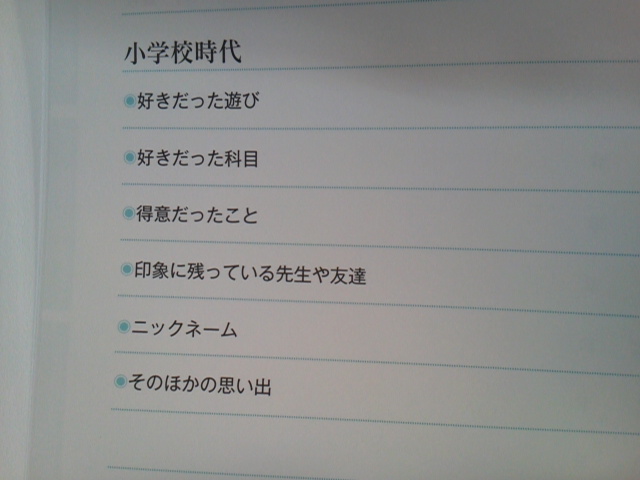 小学校時代
好きだった遊び
好きだった科目
得意だったこと
印象に残っている先生や友達
ニックネーム
そのほかの思い出